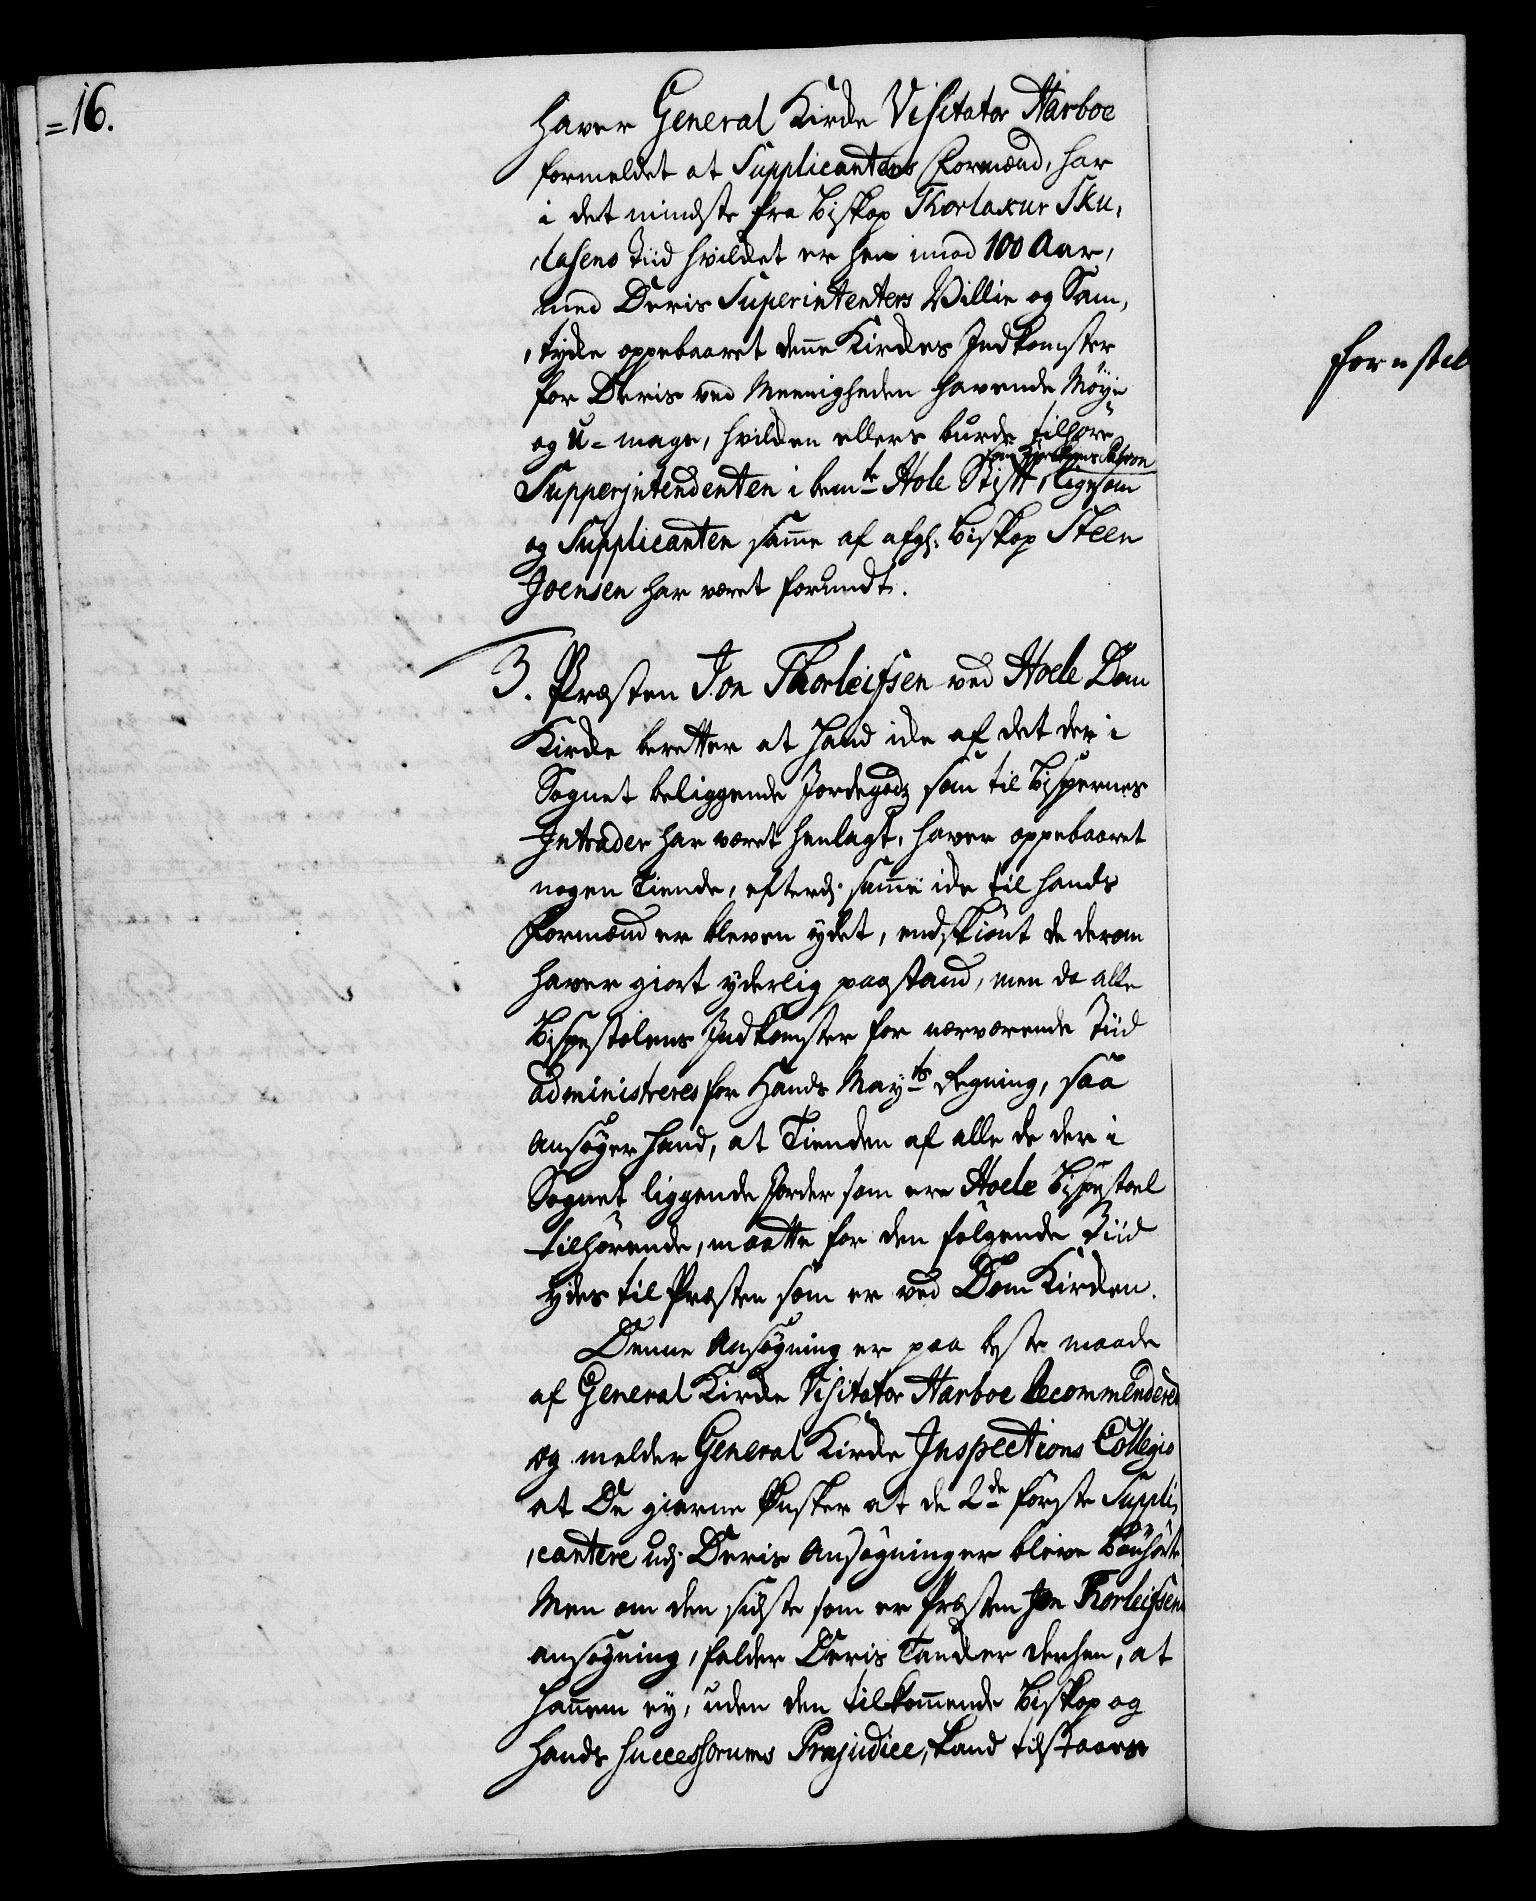 =16.
haver General Kirke Visitator Harboe
formeldet at Supplicantens Formænd, har
i det mindste fra Biskop Thorlaxur Sku,
,lasens Tiid hvilket er hen imod 100 Aar,
med Deris Superintenters Villie og Sam,
,tycke oppebaaret denne Kirckes Indkomster
for Deris ved Meenigheden havende Møye
og U=mage, hvilcken ellers burde tilhøre
som Kirckens Patron
Supperintendenten i bemte Hole Stift, ligesom
og Supplicanten samme af afg: Biskop Steen
Joensen har været forundt.
3. Præsten Jon Thorleifsen ved Hoele Dom
Kircke beretter at hand icke af det der i
Sognet beliggende Jordegods som til Bispernes
Intrader har været henlagt, haver oppebaaret
nogen Tiende, efterdj samme icke til hands
Formænd er bleven ydet, endskiønt de derom
haver giort yderlig paastand, men da alle
Bispestolens Indkomster for nærværende Tiid
administreres for Hands Mayts Regning, saa
ansøger hand, at Tienden af alle de der i
Sognet liggende Jorder som ere Hoele Bispestoel
tilhørende, maatte for den følgende Tiid
ydes til Præsten som er ved Dom Kircken.
Denne Ansøgning er paa beste maade
af General Kircke Visitator Harboe Recommenderet
og melder General Kircke Inspections Collegio
at De gierne Ønsker at de 2de første Suppli,
,cantere udj Deris Ansøgninger bleve Bønhørte
Men om den sidste som er Præsten Jon Thorleifsens
ansøgning, falder Deris Tancker derhen, at
hannem ey, uden den tilkommende Biskop og
hands Successorums Præjudice, kand tilstaaes
forestil